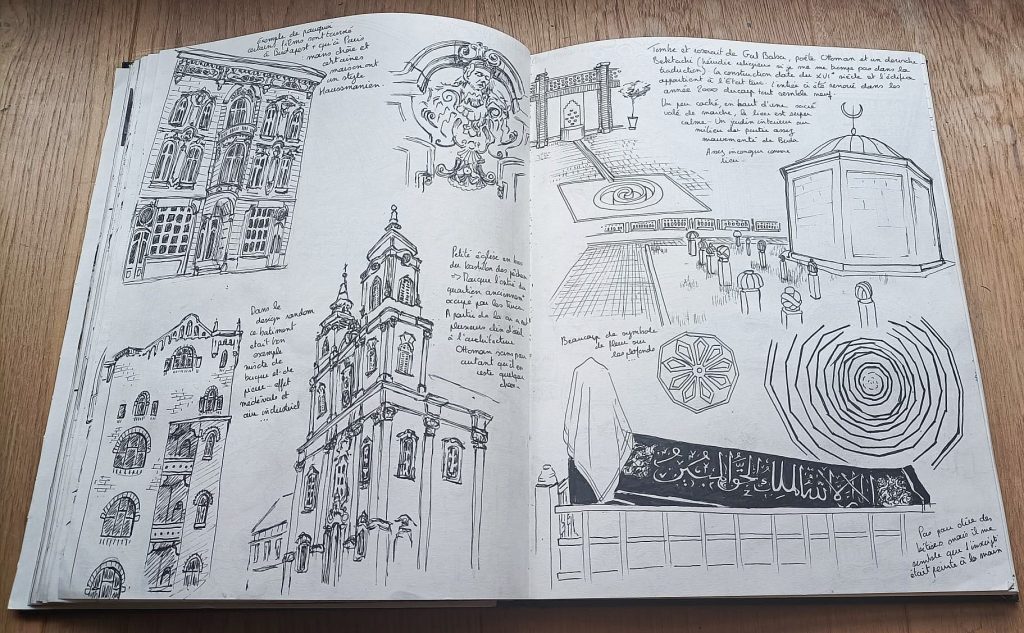 Exemple de pourquoi
certains films sont tourné
à Budapest + qu'à Paris
moins chère et
certaines
maisons ont
un style
Haussmanien.
Petite église en bas
du bastion des pêcheurs
=> Marque l'entrée du
quartier anciennement
occupé par les Turcs.
A partir de là on a eu
plusieurs clin d'œil
à l'architecture
Ottoman sans pour
autant qu'il en
reste quelque
chose.
Dans le
design random
ce batiment
était bon
exemple
mixte de
brique et de
pierre - effet
medievale et
air industriel
...
Tombe et de Gül Baba, poète Ottoman et un derviche
Bektachi (religieux si je ne me trompe pas dans la
traduction) la construction date du XVIe siècle et l'édifice
appartient à l'État turc. l'entrée a été renové dans les
année 2000 du coup tout semble neuf.
Un peu caché, en haut d'une sacré
volé de marche, le lieu est super
calme. Un jardin interieur au
milieu des parties assez
mouvementé de Buda
Assez incongru comme
lieu...
Beaucoup de symbole
de fleur sur
les plafonds
لا إله إلا الله الملك الحق المبين
Pas pour dire des
bêtises mais il me
semble que l'inscript
était peinte à la main